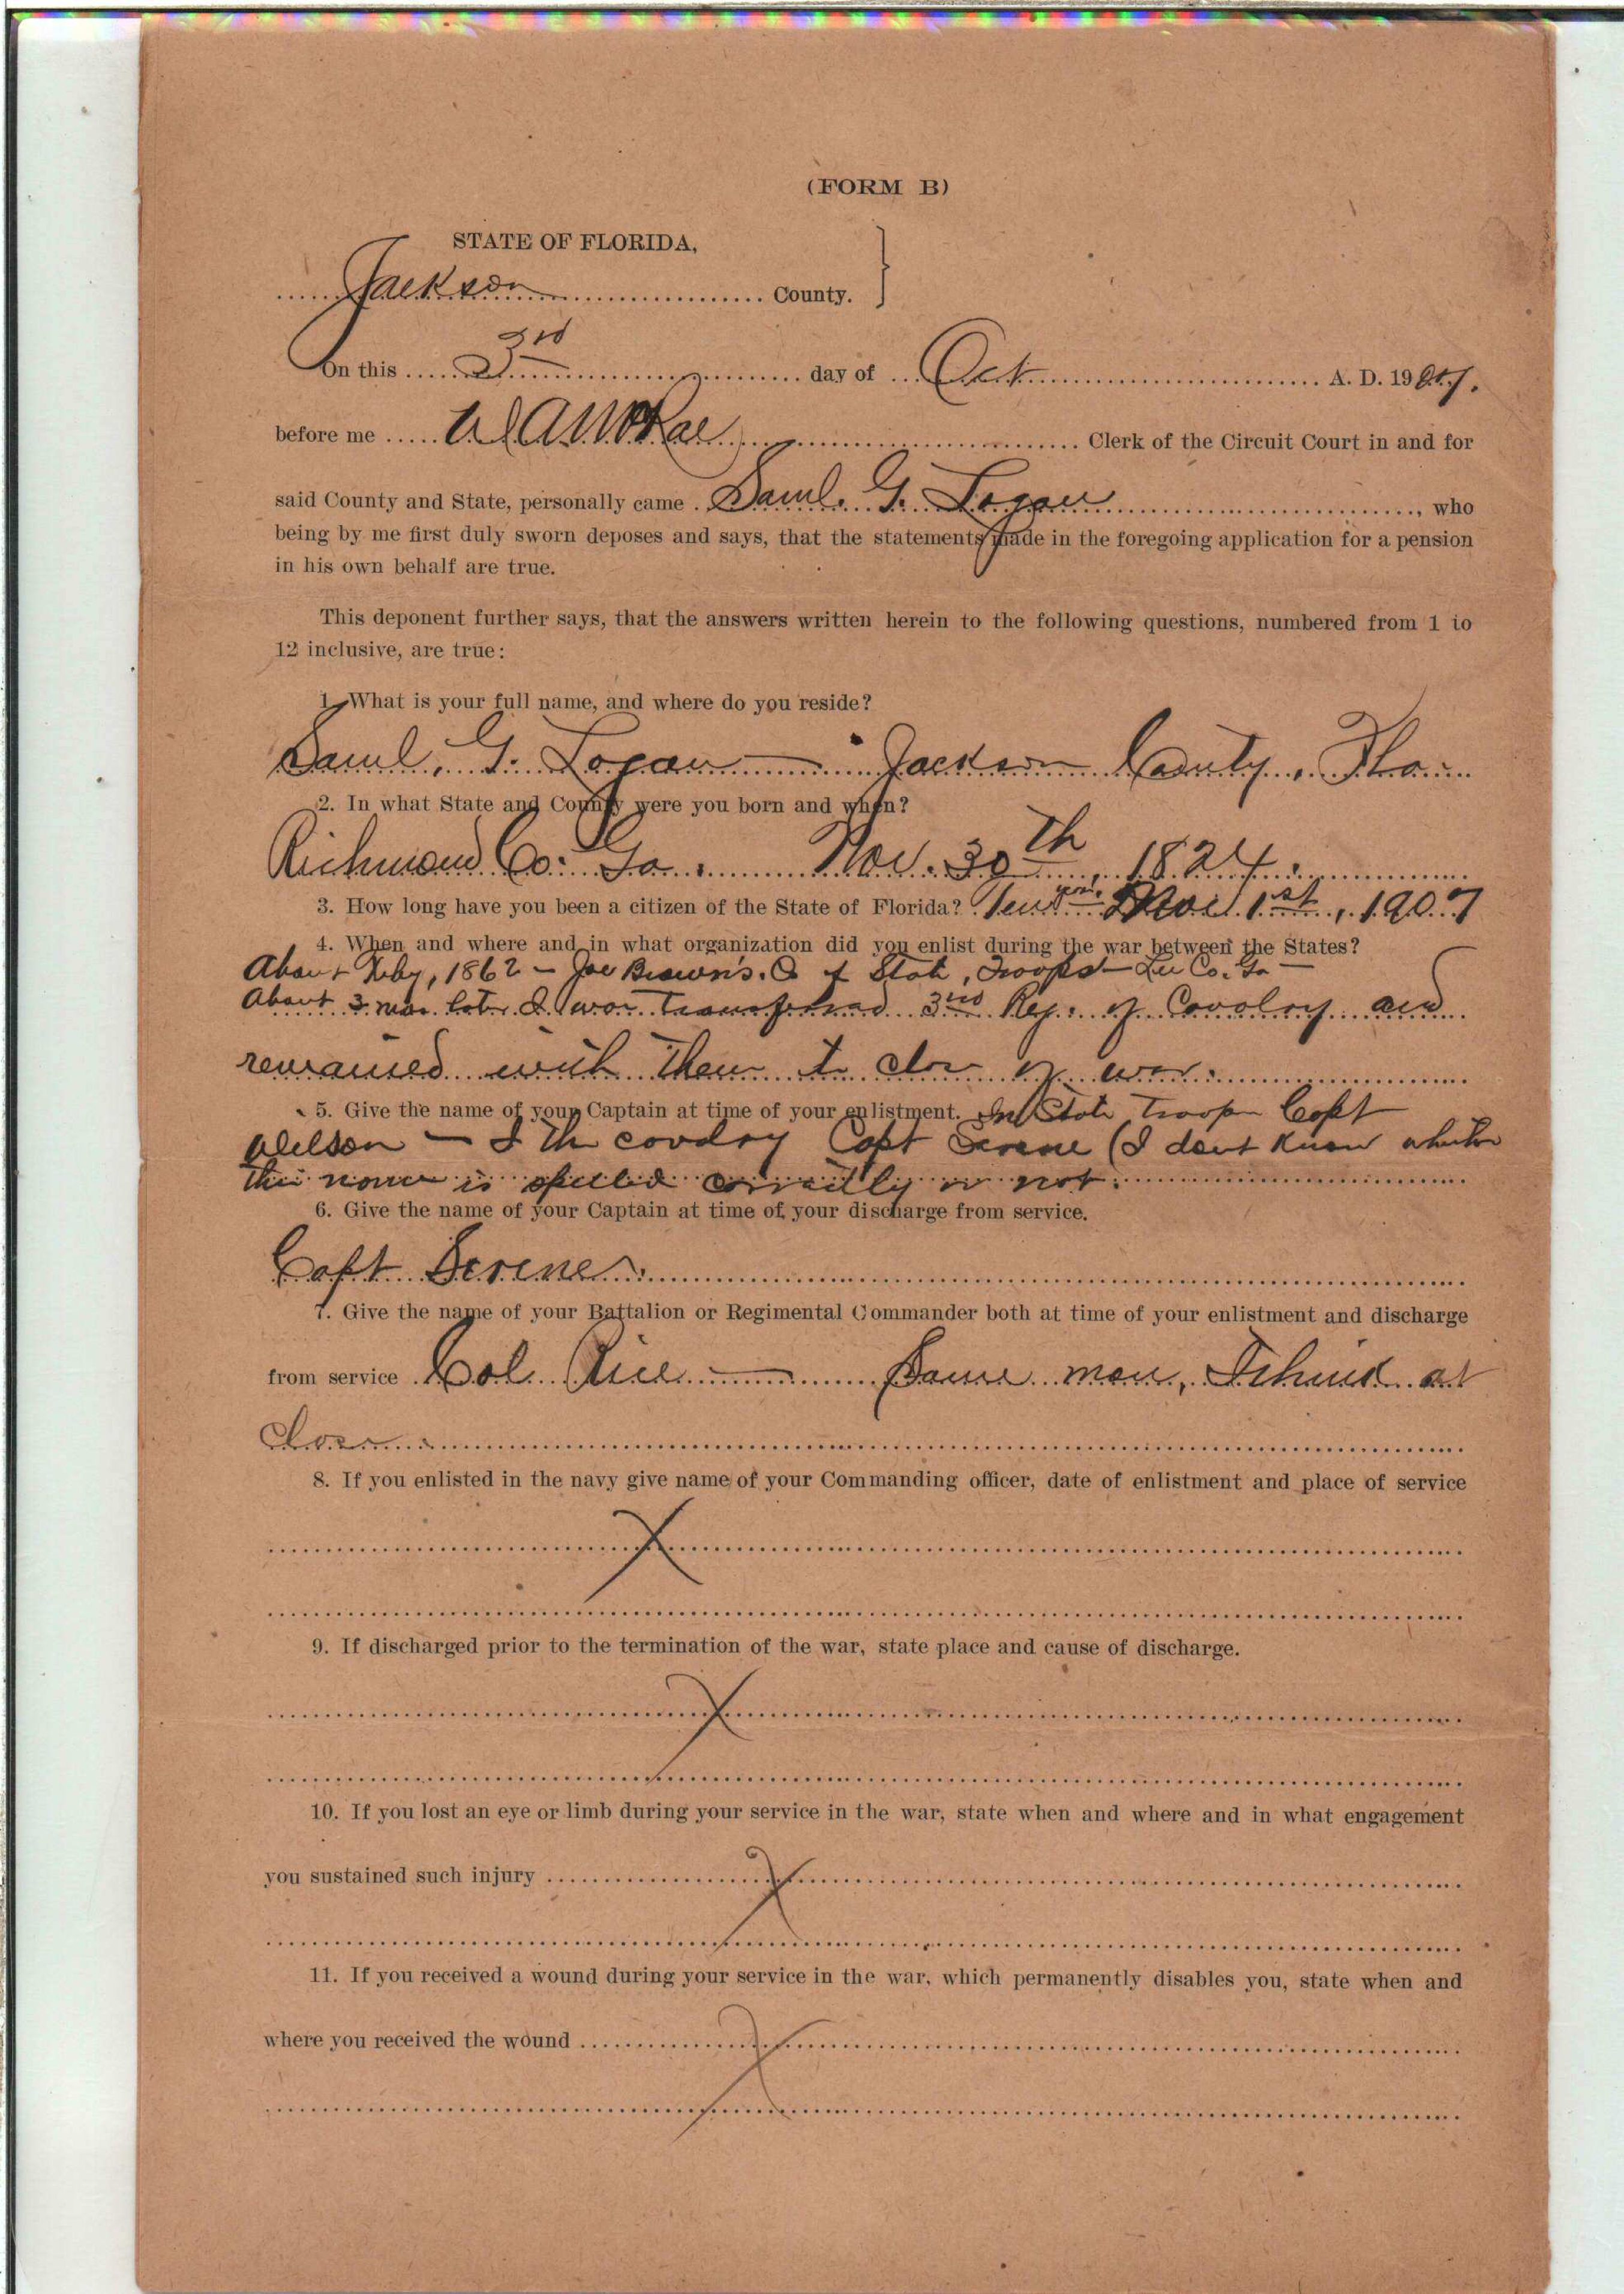 (FORM B)
STATE OF FLORIDA,
Jackson County.
On this 3rd day of Oct A. D. 1907.
before me Clerk of the Circuit Court in and for
said County and State, personally came Saml. G. Logan, who
being by me first duly sworn deposes and says, that the statements made in the foregoing application for a pension
in his own behalf are true.
This deponent further says, that the answers written herein to the following questions, numbered from 1 io
12 inclusive, are true:
1. What is your full name, and where do you reside?
Saml. G. Logan — Jackson County, Fla.
2. In what State and County were you born and when?
Richmond Co. Ga. Nov. 30th, 1824.
3. How long have you been a citizen of the State of Florida? Ten yrs. Nov. 1st, 1907
4. When and where and in what organization did you enlist during the war between the States?
About Feby, 1862 — Joe Brown's State Troops — Lee Co. Ga —
About 3 mos. later I was transferred 3rd Reg. of Cavalry and
remained with them to close of war.
5. Give the name of your Captain at time of your enlistment. In State troops Capt
Wilson — In cavalry Capt Serene (I dont know whether
this name is spelled correctly or not.
6. Give the name of your Captain at time of your discharge from service.
Capt Serene.
7. Give the name of your Battalion or Regimental Commander both at time of your enlistment and discharge
from service Col. Rice — Same man, I think at
close.
8. If you enlisted in the navy give name of your Commanding officer, date of enlistment and place of service
X
9. If discharged prior to the termination of the war, state place and cause of discharge.
X
10. If you lost an eye or limb during your service in the war, state when and where and in what engagement
you sustained such injury X
11. If you received a wound during your service in the war, which permanently disables you, state when and
where you received the wound X